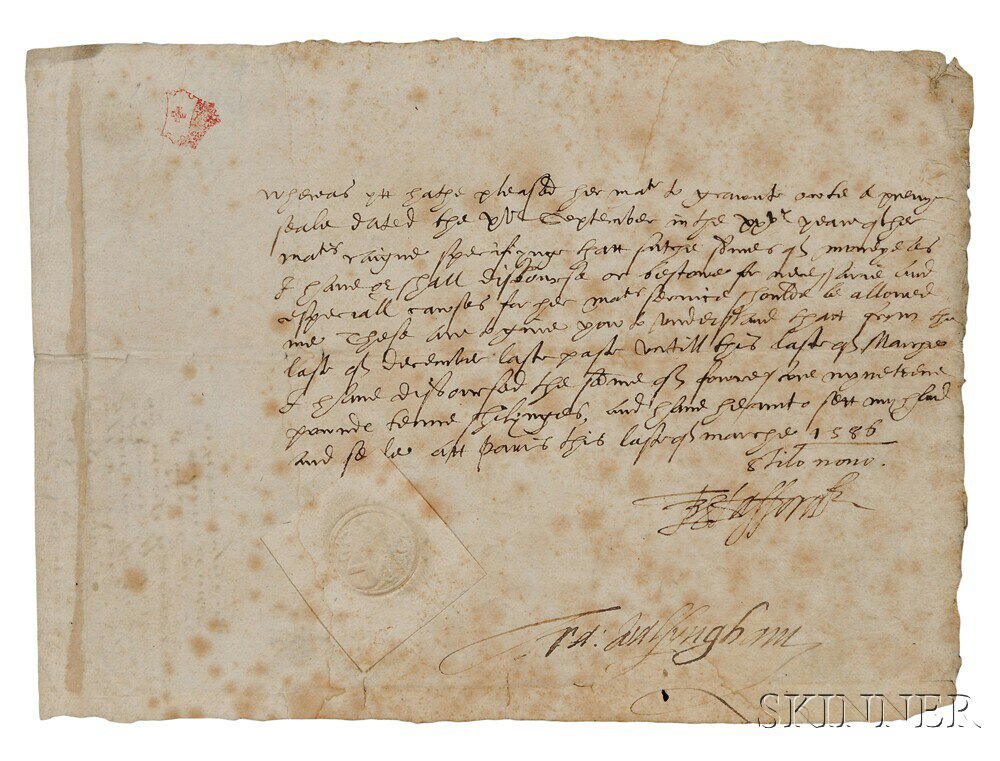 Whereas ytt hathe pleased her matie to graunte owte a prevye
seale dated the September in the yeare of her
maties raigne specifyinge thatt sutche somes of moneye as
I have or shall disbourse or bestowe for necessarie and
especiall cawses for her maties service shoulde be allowed
me These are to give yow to understand thatt from the
last of decembre last past untill this last of Marche
I have disboursed the some of fowrescore nynetene
pounde tenne shilynges, and have herunto sett my hand
and seale att Paris this last of marche 1586
stilo novo.
Stafford
Fra: Walsyngham
SKINNER